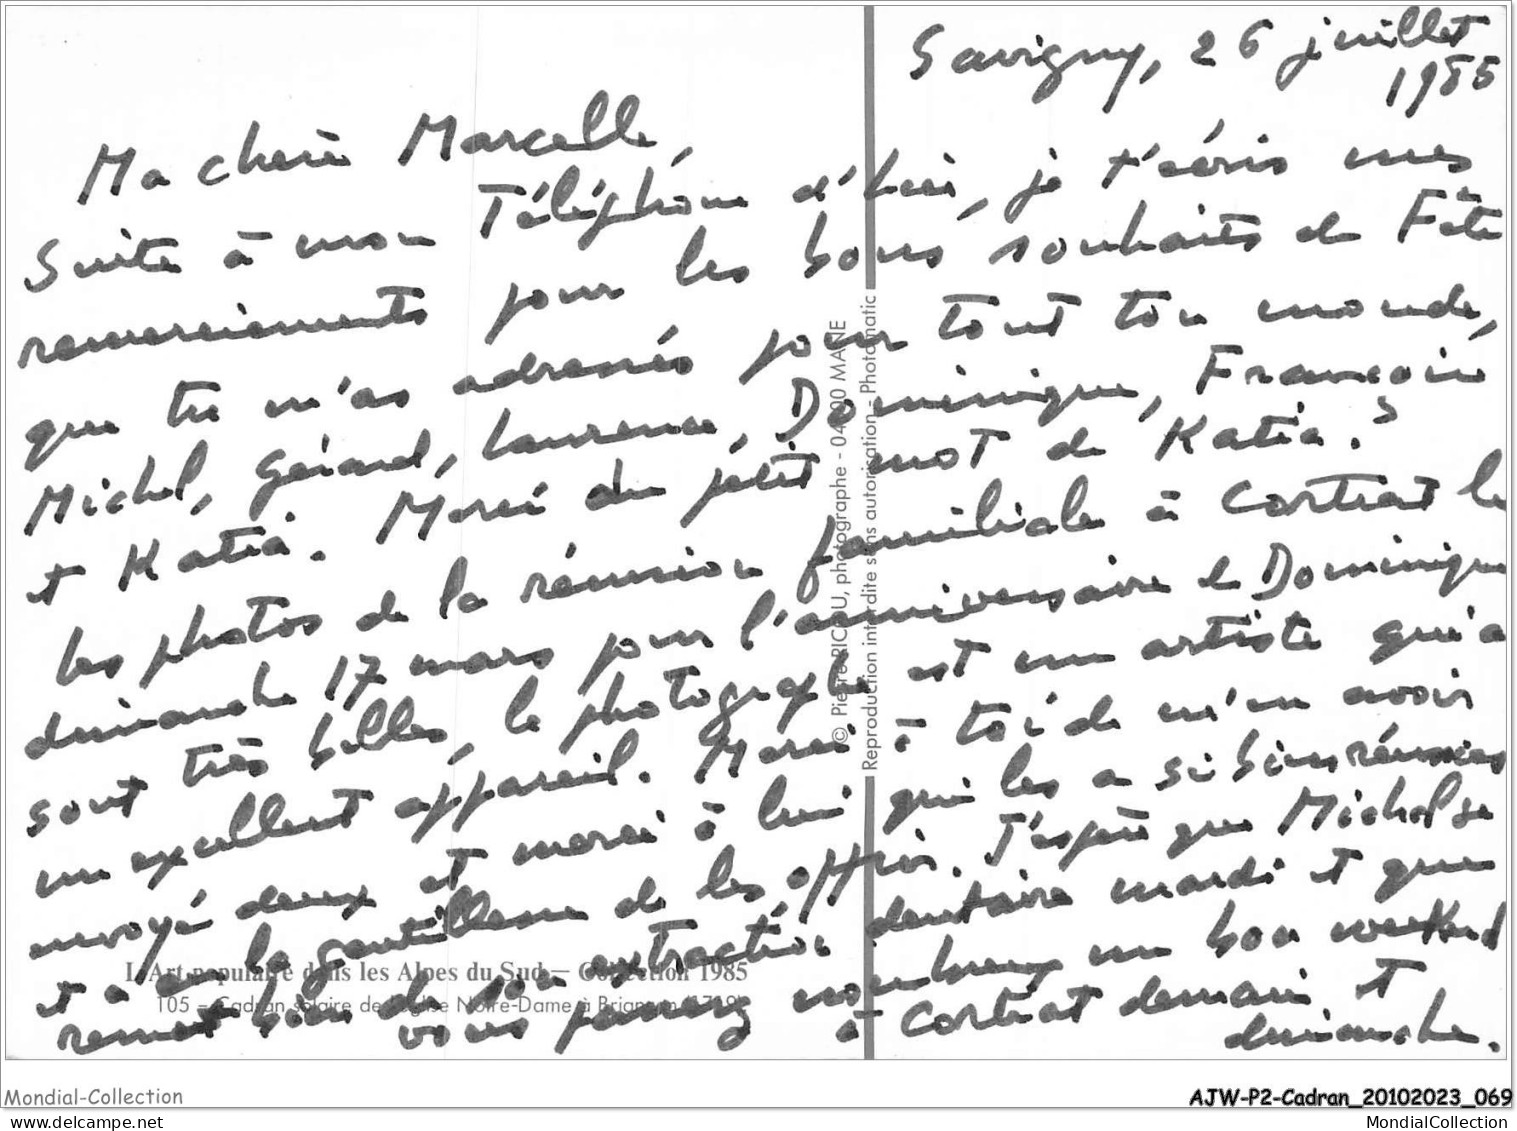 Savigny, 26 juillet
1985
Ma chère Marcelle,
Suite à mon Téléphone d'hier, je t'écris mes
remerciements pour les bons souhaits de Fête
que tu m'as adressés pour tout ton monde,
Michel, Gérard, Laurence, Dominique, Françoise
et Katia. Merci du petit mot de Katia.
Les photos de la réunion familiale à Cortrat le
dimanche 17 mars pour l'anniversaire de Dominique
sont très belles, le photographe est un artiste qui a
un excellent appareil. Merci à toi de m'en avoir
envoyé deux et merci à lui qui les a si bien réussies
et a eu la gentillesse de les offrir. J'espère que Michel se
remet bien de son extraction dentaire mardi et que
vous passerez nombreux un bon weekend
à Cortrat demain et
dimanche.
L'Art populaire dans les Alpes du Sud — Collection 1985
105 – Cadran solaire de l'église Notre-Dame à
© Pierre RICOU, photographe - 04300 MANE
Reproduction interdite sans autorisation - Photomatic
Mondial-Collection
AJW-P2-Cadran_20102023_069
MondialCollection